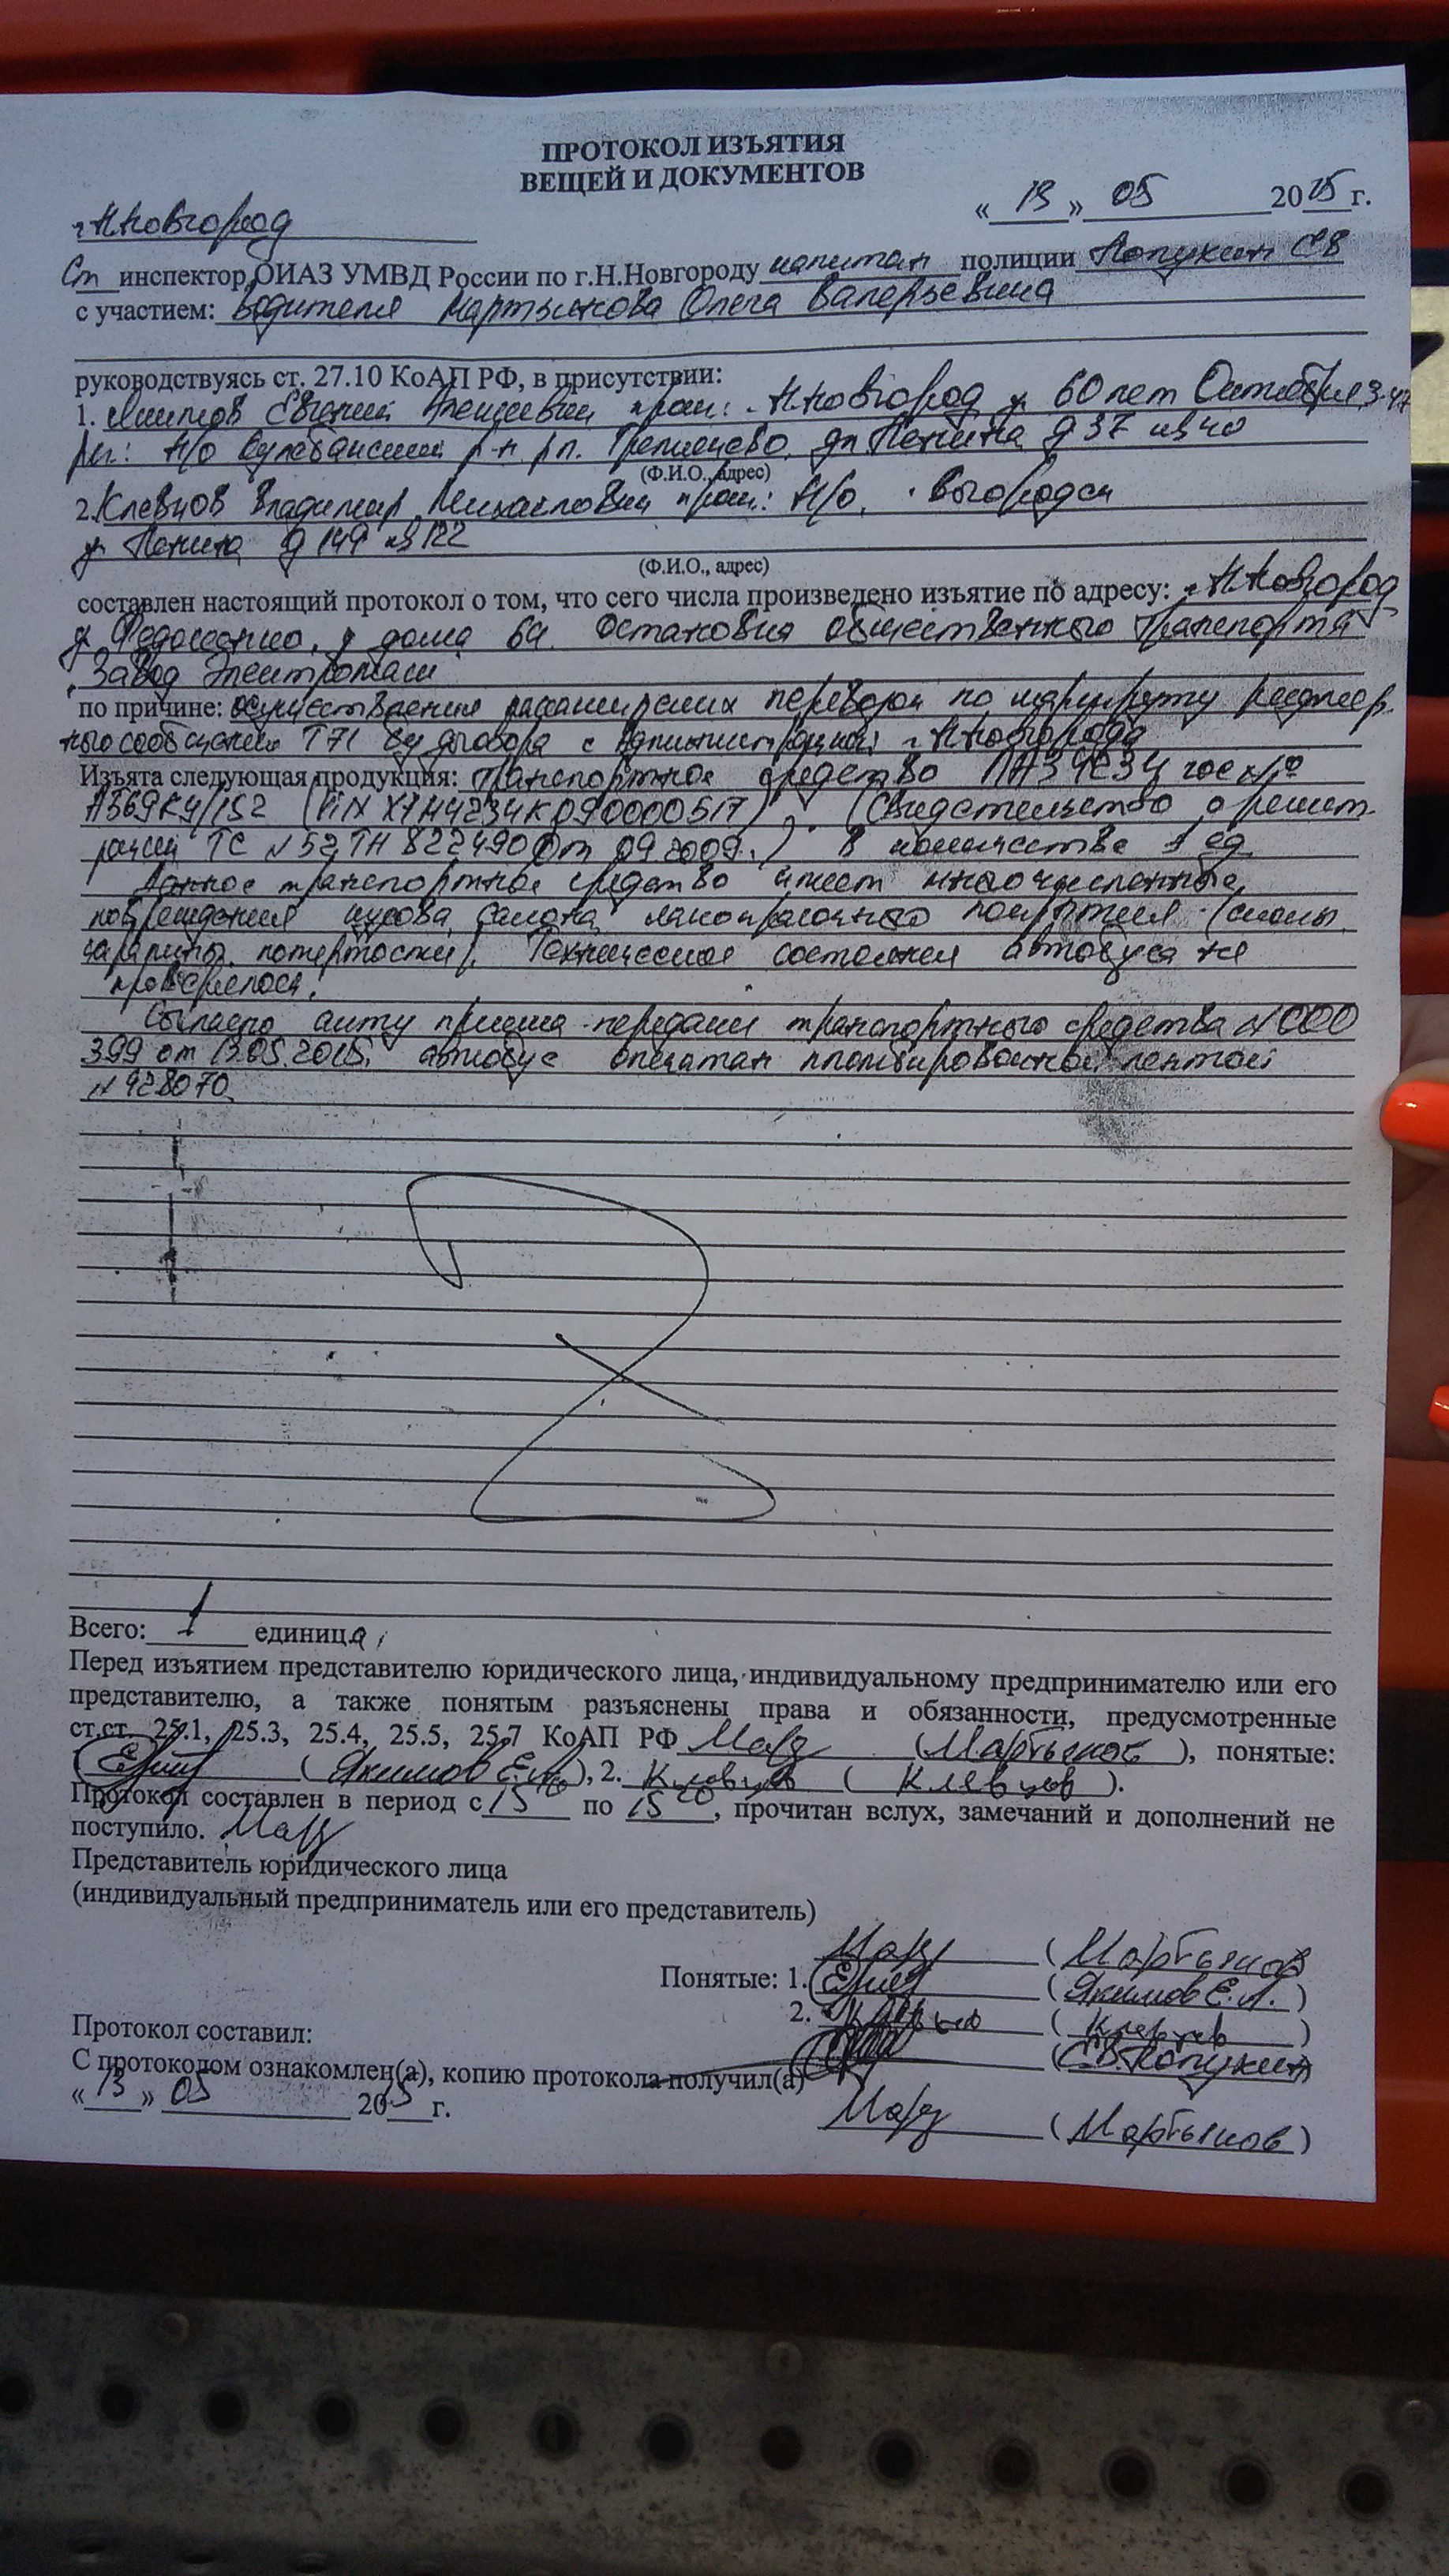 ПРОТОКОЛ ИЗЪЯТИЯ
ВЕЩЕЙ И ДОКУМЕНТОВ
г. Н.Новгород
« 13 » 05 2015 г.
Ст инспектор ОИАЗ УМВД России по г.Н.Новгороду капитан полиции Лопухин СВ
с участием: водителя Мартынова Олега Валерьевича
руководствуясь ст. 27.10 КоАП РФ, в присутствии:
1. Якимов Евгений прож: г. Н.Новгород ул 60 лет Октября
рег: Н/о р-н рп. ул Ленина д 37 кв 40
(Ф.И.О., адрес)
2. Клевцов Владимир Михайлович прож: Н/о,
ул Ленина д 149 кв 122
(Ф.И.О., адрес)
составлен настоящий протокол о том, что сего числа произведено изъятие по адресу: г. Н.Новгород
у дома Остановка общественного транспорта
Завод Электромаш
по причине: осуществления пассажирских перевозок по маршруту регуляр
ного сообщения Т71 без договора с администрацией г. Н.Новгорода
Изъята следующая продукция: транспортное средство ПАЗ 4234 гос №
(Свидетельство о регист
рации ТС N 52 ТН 822490 от 09.2009г.) в количестве 1 ед.
Данное транспортное средство имеет многочисленные
повреждения кузова, салона, лакокрасочного покрытия (сколы,
царапины, потертости). Техническое состояния автобуса не
проверялось.
Согласно акту приема-передачи транспортного средства N 000
399 от 13.05.2015г. автобус опечатан пломбировочной лентой
N 928070.
Всего: 1 единица
Перед изъятием представителю юридического лица, индивидуальному предпринимателю или его
представителю, а также понятым разъяснены права и обязанности, предусмотренные
ст.ст. 25.1, 25.3, 25.4, 25.5, 25.7 КоАП РФ (Мартынов), понятые:
(Якимов Е.А.), 2. Клевцов (Клевцов).
Протокол составлен в период с 15 по 15 20, прочитан вслух, замечаний и дополнений не
поступило.
Представитель юридического лица
(индивидуальный предприниматель или его представитель)
(Мартынов
Понятые: 1. (Якимов Е.А.)
2. (Клевцов)
Протокол составил: (С.В. Лопухин
С протоколом ознакомлен(а), копию протокола получил(а)
« 13 » 05 2015 г.
(Мартынов)